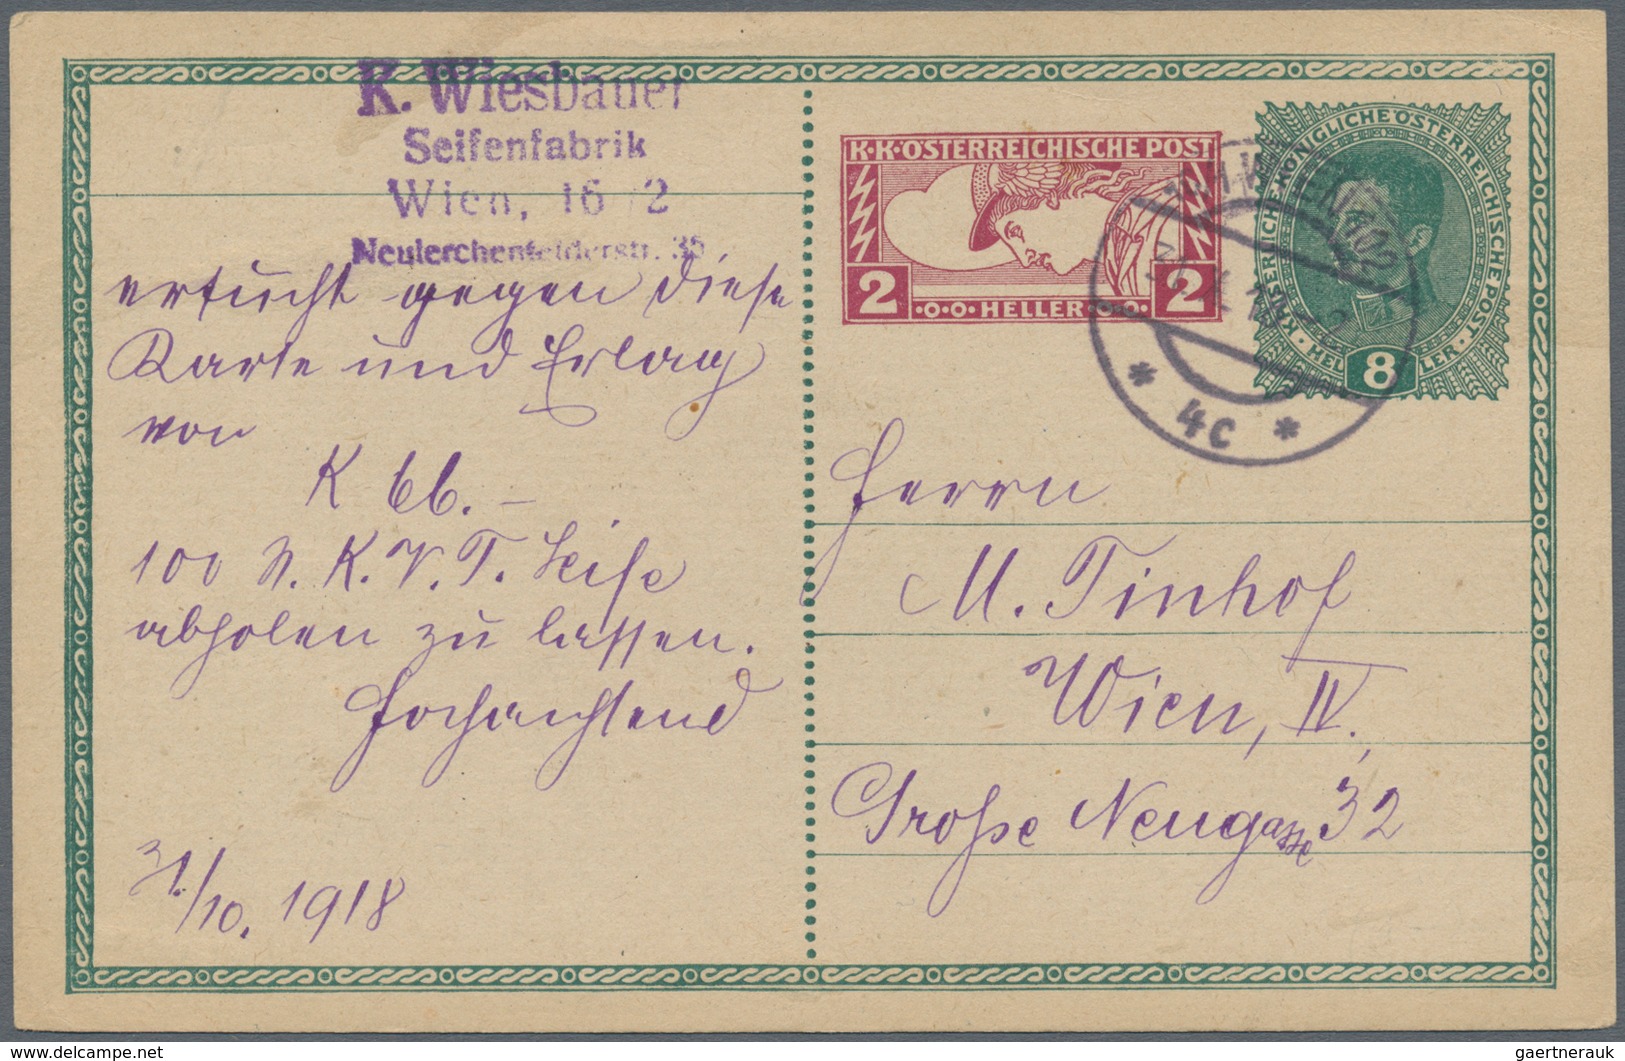 K. Wiesbauer
Seifenfabrik
Wien, 16/2
Neulerchenfelderstr. 35
ersucht gegen diese
Karte und Erlag
von
K 66.–
100 St. K. V. T. Seife
abholen zu lassen.
Hochachtend
31./10. 1918
K·K·ÖSTERREICHISCHE POST
2 ·o·o·HELLER·o·o· 2
KAISERLICH·KÖNIGLICHE ÖSTERREICHISCHE POST·
·HELLER·
8
WIEN
* 4c *
Herrn
M. Tinhof
Wien, IV.,
Große Neugasse 32
gaertnerauk
https://www.delcampe.net